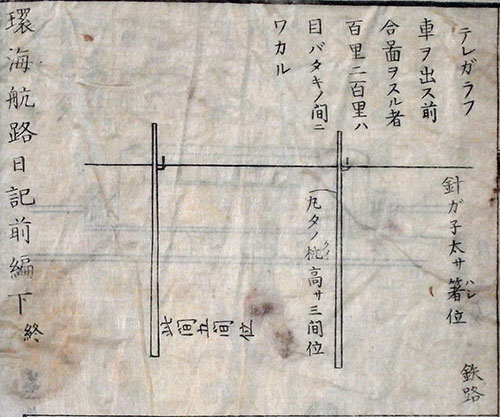 テレガラフ
車ヲ出ス前
合啚ヲスル者
百里二百里ハ
目バタキノ間ニ
ワカル
針ガ子太サ箸位
ハシ
鉄路
丸タノ杭高サ三间位
クイ
此间五间位
環海航路日記前編下終